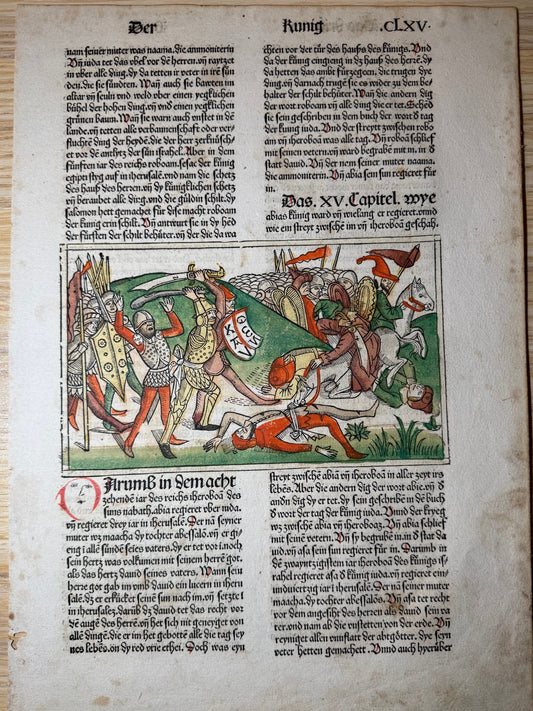 Der
Kunig
.CLXV.
nam seiner muter was naama. die ammoniterin
Vn̄ iuda tet das vbel vor dē herren. vn̄ raytzet
in vber alle ding. dy da tetten ir veter in irē sün
den. die sie sündten. Wañ auch sie bawten in
altar vn̄ seuln vnd weld ob einen yegklichen
bühel der hohen ding. vn̄ vnd einen yegklichen
grünen baum. Wañ sie warn auch vnstet in dē
lande. vn̄ tetten alle verbannenschafft oder verflu
chte ding der heydē. die der herr
vor dē antlytz der sün israhel. Aber in dem
fünften iar des reichs roboam. sesac der künig
egipti styg auf in iherusalē. vnd nam die schetz
des hauß des herren. vn̄ dy künigklichen schetz
vn̄ beraubet alle ding. vnd die güldin schilt. dy
salomon hett gemachet für dise macht roboam
der künig erin schilt. Vn̄ antwurt sie in dy hēd
der fürsten der schilt behüter. vn̄ der die da wa
chten vor der tür des hauß des künigs. Vnd
da der künig eingieng in dz hauß des herrē. dy
da hetten das ambt fürzegeen. die trugen dye
ding. vn̄ darnach trugē sie es wider zu dem be
halter der schilt behüter. Wañ die andern dig
der wort roboam vn̄ alle ding die er tet. Sehēd
sie sein geschriben in dem buch der wort d̕ tag
der künig iuda. Vnd der streyt zwischen robo
am vn̄ iheroboam was alltag. Vn̄ robōā schlief
mit seinen vetern. vn̄ ward begrabē mit in. in d̕
statt dauid. Vn̄ der nam seiner muter naama.
die ammoniterin. Vn̄ abia sein sun regieret für
in.
Das. XV. Capitel. wye
abias künig ward vn̄ wielang er regieret. vnd
wie ein streyt zwischē im vn̄ iheroboā geschah.
Arumb in dem acht
zehende iar des reichs iheroboā des
suns nabath. abia regieret vber iuda.
vn̄ regieret drey iar in iherusalē. Der nā seyner
muter wz maacha dy tochter abessalō. vn̄ er gi
eng i allē sündē seines vaters. dy er tet vor i. noch
sein hertz was volkumen mit seinem herrē got.
als das hertz dauid seines vaters. Wann sein
herre got gab im vmb dauid ein lucern in iheru
salē. dz er erkücket seinē sun nach im. vn̄ setzte i
in iherusalez. darūb dz dauid tet das recht vor
dē augē des herrē. vn̄ het sich nit geneyget von
allē dingē. die er im het gebottē alle die tag sey
nes lebēs. on dy red vrie ethei. Doch was eyn
streyt zwischē abia vn̄ iheroboā in aller zeyt irs
lebēs. Aber die andern dig der wort abie. vn̄ d̕
andn̄ dig dy er tet. dy sein geschribē in dē buch
d̕ wort der tag der künig iuda. Vnd der kryeg
wz zwischē abia vn̄ iheroboaz. Vn̄ abia schlief
mit seinē vetern. Vn̄ sy begrubē in. in d̕ stat da
uid. vn̄ asa sein sun regieret für in. Darumb in
dē zwayntzigistem iar iheroboam des künigs is
rahel regieret asa d̕ künig iuda. vn̄ regieret ein
undviertzig iar i iherusalē. Der nā seiner muter
maacha. dy tochter abessalōs. Vn̄ asa tet recht
vor dem angesiht des herren als dauid sein va
ter. vnd nam ab die vnstetten von der erde. Vn̄
reyniget allen vnnflatt der abtgötter. dye seyn
veter hetten gemachett. Vnnd auch hyerüber